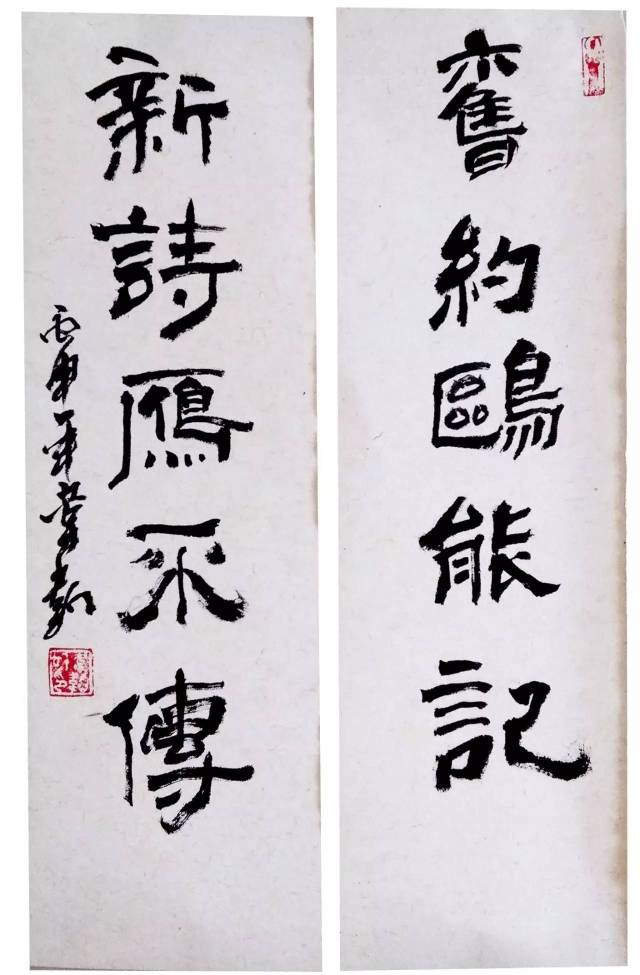 舊約鷗能記
新詩鴈不傳
丙申年